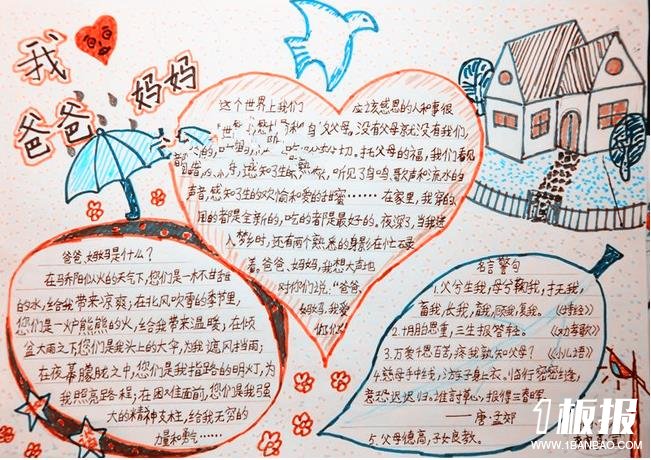 我
爸爸 妈妈
这个世界上我们 应该感恩的人和事很
父母,没有父母就没有我们,
托父母的福,我们看见
听见了鸟鸣、歌声和流水的
声音,感知了生的欢愉和爱的甜蜜……在家里,我穿的、
用的都是全新的,吃的都是最好的。夜深了,当我进
入梦乡时,还有两个熟悉的身影在忙云录
着。爸爸、妈妈,我想大声地
对你们说:“爸爸、
妈妈,我爱
你们!”
爸爸、妈妈是什么?
在马乔阳似火的天气下,您们是一杯甘甜
的水,给我带来凉爽;在北风吹雪的季节里,
您们是一炉熊熊的火,给我带来温暖;在倾
盆大雨之下您们是我头上的大伞,为我遮风挡雨;
在夜幕朦胧之中,您们是我指路的明灯,为
我照亮路程;在困难面前,您们是我坚强
大的精神支柱,给我无穷的
力量和勇气……
名言警句
1.父兮生我,母兮鞠我,抚我,
畜我,长我,育我,顾我,复我。《诗经》
2.十月胎恩重,三生报答轻。《劝孝歌》
3.万爱千恩百苦,疼我孰知父母?《小儿语》
4.慈母手中线,游子身上衣。临行密密缝,
意恐迟迟归。谁言寸草心,报得三春晖。
——唐·孟郊
5.父母德高,子女良教。
1板报
WWW.1BANBAO.COM